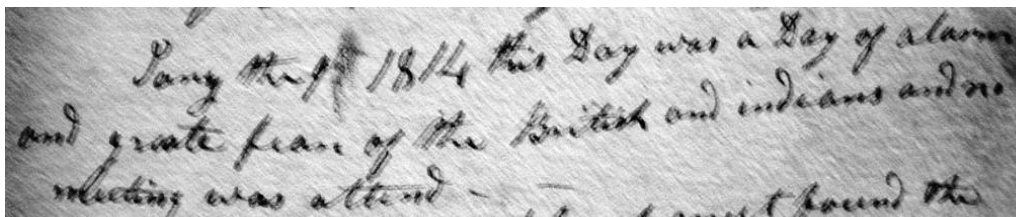 Jany the 1st 1814 this Day was a Day of alarm
and greate fear of the British and indians and no
meeting was attend -
found the